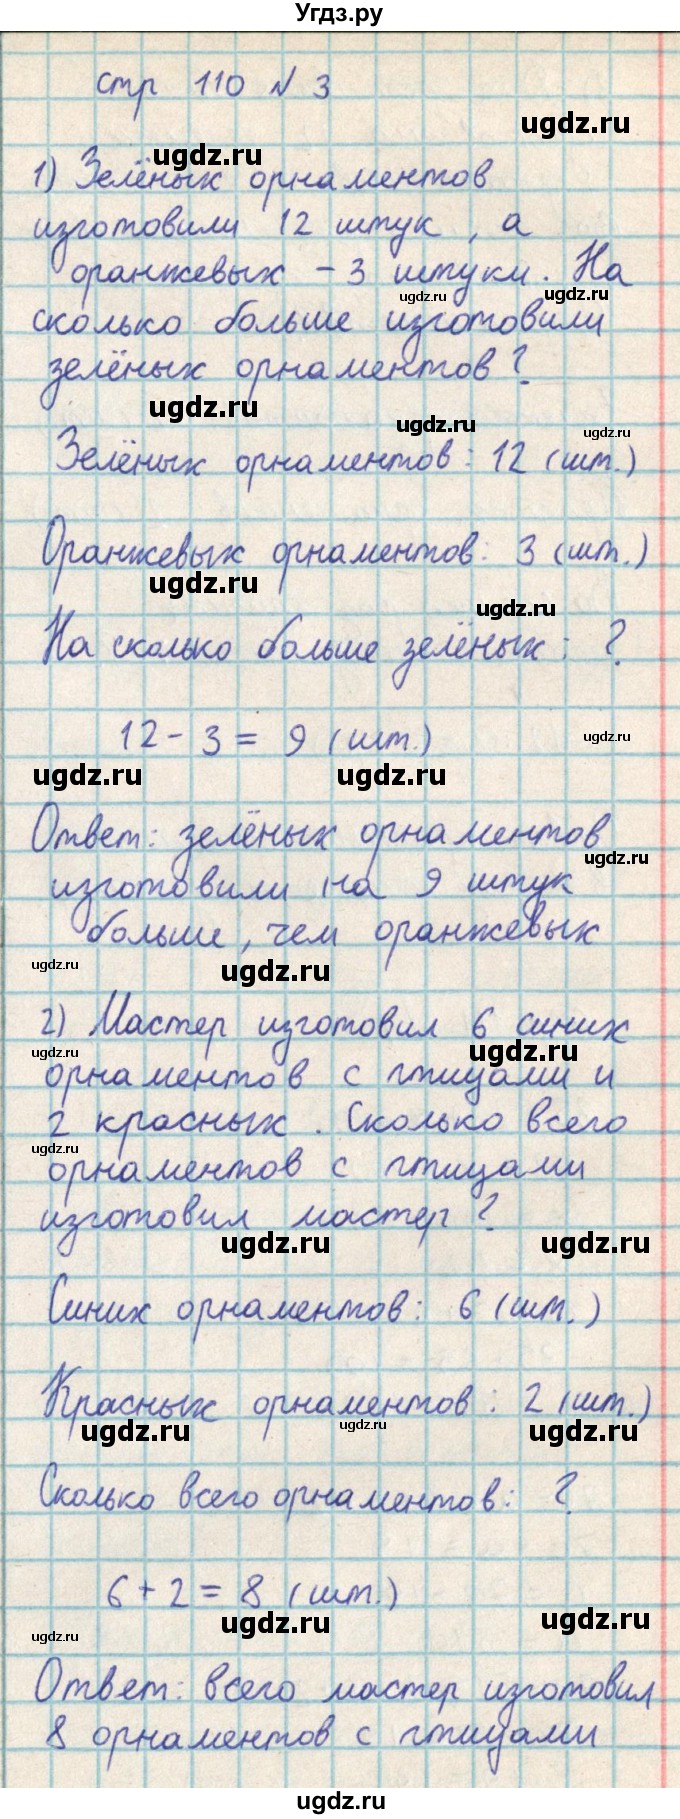 Угдз.ру
стр 110 № 3
ugdz.ru
ugdz.ru
1) Зелёных орнаментов
изготовили 12 штук, а
оранжевых – 3 штуки. На
ugdz.ru ugdz.ru
сколько больше изготовили
зелёных орнаментов?
ugdz.ru ugdz.ru ugdz.ru
Зелёных орнаментов: 12 (шт.)
Оранжевых орнаментов: 3 (шт.)
ugdz.ru ugdz.ru
На сколько больше зелёных: ?
12 - 3 = 9 (шт.) ugdz.ru
ugdz.ru ugdz.ru
Ответ: зелёных орнаментов
ugdz.ru
изготовили на 9 штук
больше, чем оранжевых
ugdz.ru ugdz.ru
2) Мастер изготовил 6 синих
ugdz.ru ugdz.ru
орнаментов с птицами и
2 красных. Сколько всего
ugdz.ru
орнаментов с птицами
изготовил мастер?
ugdz.ru ugdz.ru
Синих орнаментов: 6 (шт.)
Красных орнаментов: 2 (шт.)
ugdz.ru ugdz.ru ugdz.ru
Сколько всего орнаментов: ?
6 + 2 = 8 (шт.)
ugdz.ru ugdz.ru ugdz.ru
Ответ: всего мастер изготовил
8 орнаментов с птицами
ugdz.ru